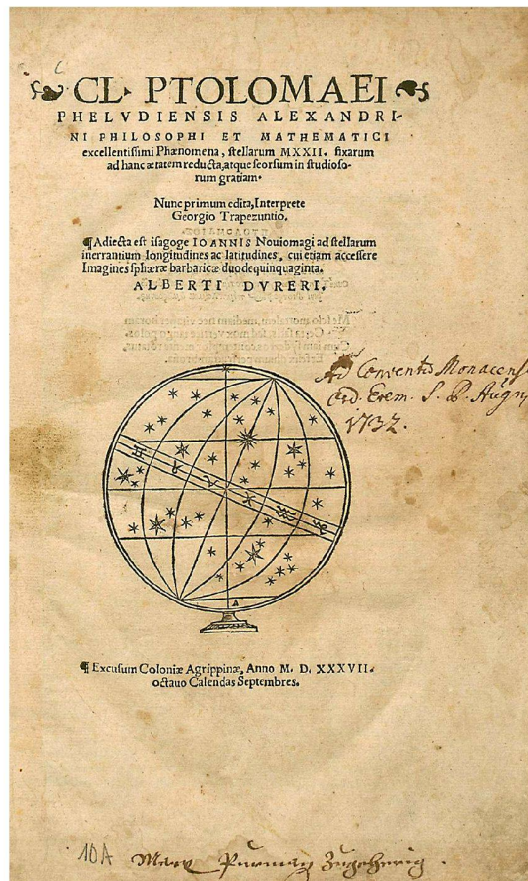 CL. PTOLOMAEI
PHELVDIENSIS ALEXANDRI-
NI PHILOSOPHI ET MATHEMATICI
excellentissimi Phænomena, stellarum MXXII. fixarum
ad hanc ætatem reducta, atque seorsum in studioso-
rum gratiam.
Nunc primum edita, Interprete
Georgio Trapezuntio.
¶Adiecta est isagoge IOANNIS Nouiomagi ad stellarum
inerrantium longitudines ac latitudines, cui etiam accessere
Imagines sphæræ barbaricæ duodequinquaginta.
ALBERTI DVRERI.
Ad Conventū Monacens
ord. Erem. S. P. Aug
1732.
¶Excusum Coloniæ Agrippinæ, Anno M. D. XXXVII.
octauo Calendas Septembres.
10A